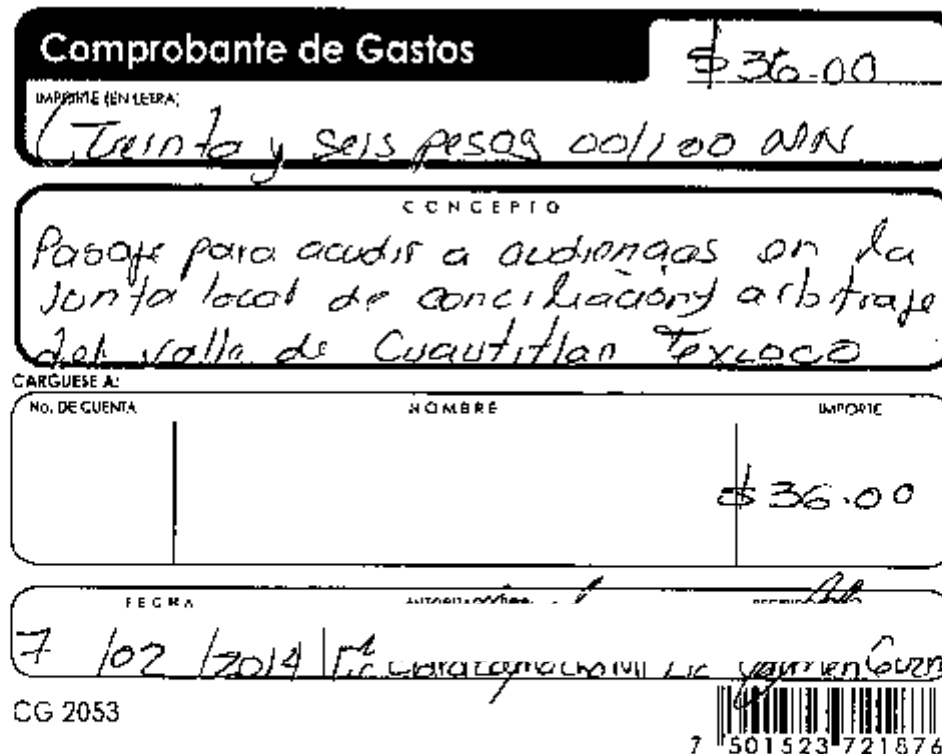 Comprobante de Gastos
$ 36.00
IMPORTE (EN LETRA)
(Treinta y seis pesos 00/100 MN
CONCEPTO
Pasaje para acudir a audiencias en la
Junta local de conciliación y arbitraje
del valle de Cuautitlan Texcoco
CARGUESE A:
No. DE CUENTA NOMBRE IMPORTE
$ 36.00
FECHA
7 /02 /2014 Lic Lic Guzn
CG 2053
7 501523 721876